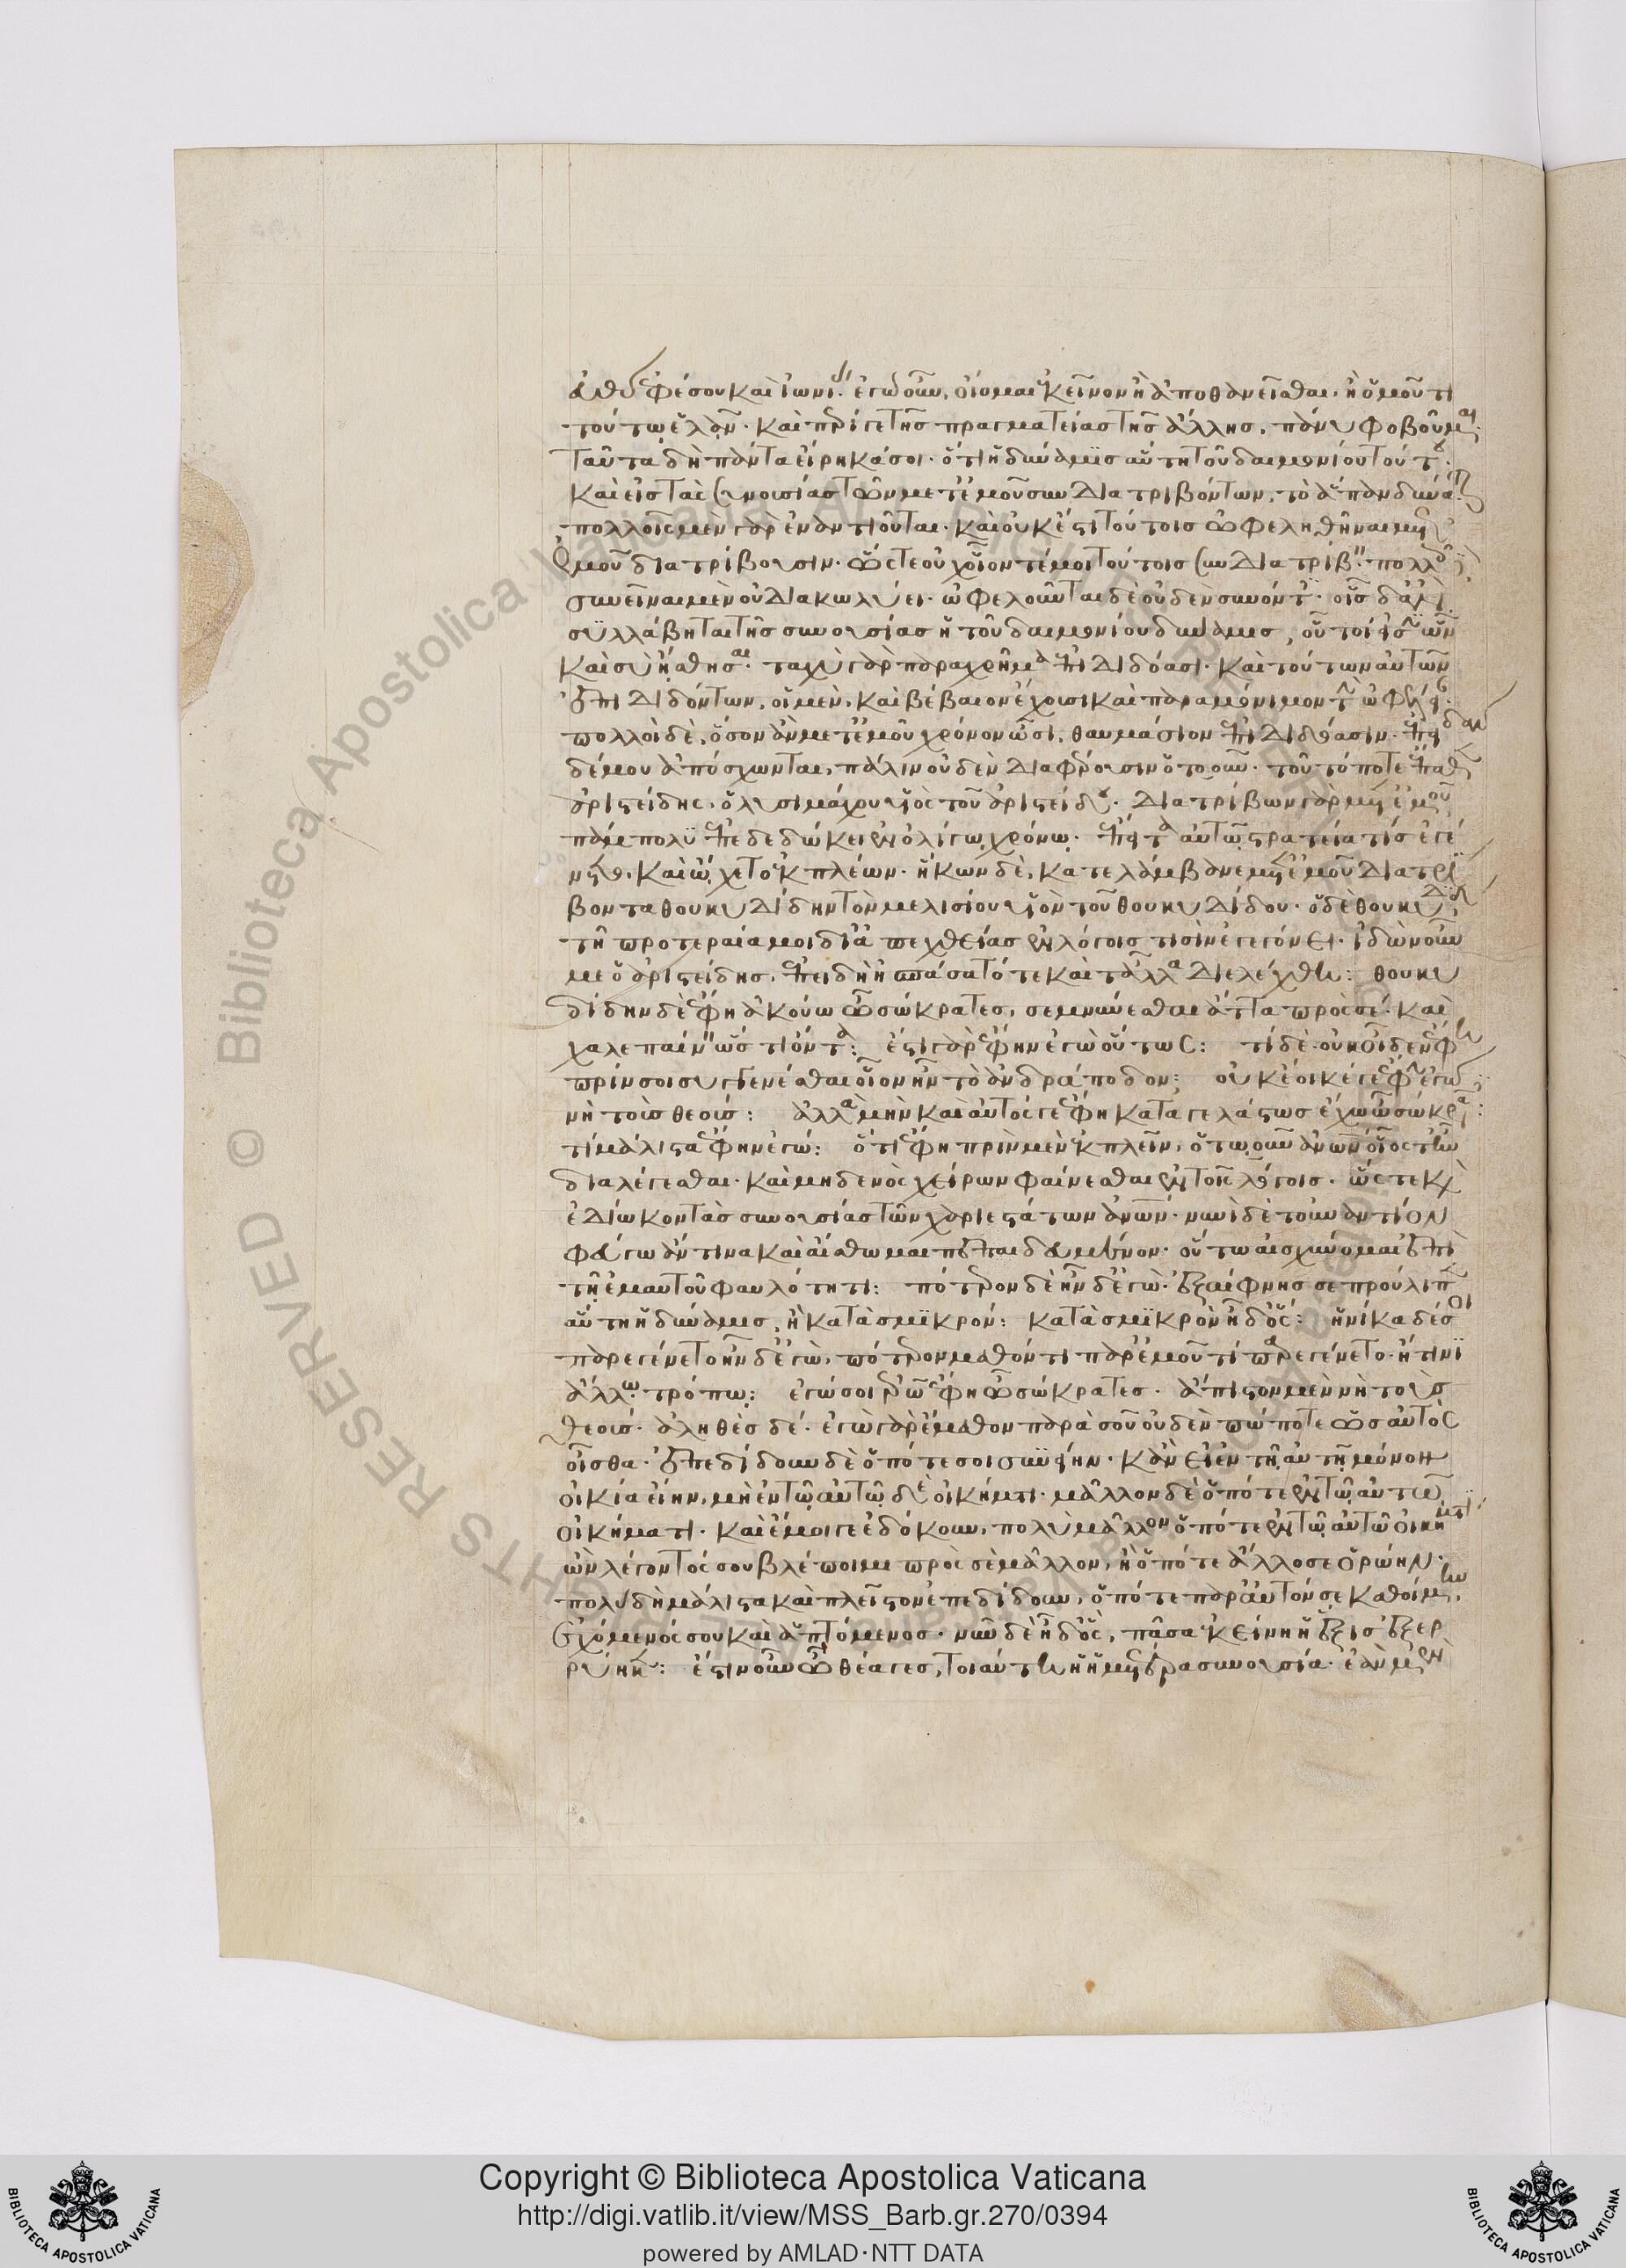 εὐθὺ ἐφέσου καὶ ἰωνίας. ἐγὼ οὖν, οἴομαι ἐκεῖνον ἢ ἀποθανεῖσθαι, ἢ ὁμοῦ τι
τούτω γ' ἐλᾶν. καὶ περί γε τῆς πραγματείας τῆς ἄλλης, πάνυ φοβοῦμαι.
ταῦτα δὴ πάντα εἴρηκά σοι. ὅτι ἡ δύναμις αὕτη τοῦ δαιμονίου τούτου.
καὶ εἰς τὰς συνουσίας τῶν μετ' ἐμοῦ συνδιατριβόντων, τὸ ἅπαν δύναται.
πολλοῖς μὲν γὰρ ἐναντιοῦται. καὶ οὐκ ἔστι τούτοις ὠφεληθῆναι μετ'
ἐμοῦ διατρίβουσιν. ὥστε οὐχ οἷόν τέ μοι τούτοις συνδιατρίβειν. πολλοῖς
συνεῖναι μὲν οὐ διακωλύει. ὠφελοῦνται δὲ οὐδὲν συνόντες. οἷς δ' ἂν
συλλάβηται τῆς συνουσίας ἡ τοῦ δαιμονίου δύναμις, οὗτοί εἰσιν ὧν
καὶ σὺ ἤσθησαι. ταχὺ γὰρ παραχρῆμα ἐπιδιδόασι. καὶ τούτων αὐτῶν
ἐπιδιδόντων, οἱ μὲν, καὶ βέβαιον ἔχουσι καὶ παραμόνιμον τὴν ὠφέλειαν.
πολλοὶ δὲ, ὅσον ἂν μετ' ἐμοῦ χρόνον ὦσι, θαυμάσιον ἐπιδιδόασιν. ἐπειδὰν
δέ μου ἀπόσχωνται, πάλιν οὐδὲν διαφέρουσιν ὁτουοῦν. τοῦτό ποτε ἔπαθεν
ἀριστείδης, ὁ λυσιμάχου υἱὸς τοῦ ἀριστείδου. διατρίβων γὰρ μετ' ἐμοῦ
πάμπολυ ἐπεδεδώκει ἐν ὀλίγω χρόνω. ἔπειτα αὐτῶ στρατεία τίς ἐγέ
νετο, καὶ ὤχετο ἐκπλέων. ἥκων δὲ, κατελάμβανε μετ' ἐμοῦ διατρί
βοντα θουκυδίδην τὸν μελισίου υἱὸν τοῦ θουκυδίδου. ὁ δὲ θουκυδίδης
τῆ προτεραία μοι δι' ἀπεχθείας ἐν λόγοις τισὶν ἐγεγόνει. ἰδὼν οὖν
με ὁ ἀριστείδης, ἐπειδὴ ἠσπάσατό τε καὶ τἆλλα διελέχθη: θουκυ
δίδην δὲ ἔφη ἀκούω ὦ σώκρατες, σεμνύνεσθαι ἄττα πρὸς σέ. καὶ
χαλεπαίνειν ὥς τι ὄντα: ἔστι γὰρ ἔφην ἐγὼ οὕτως: τί δὲ. οὐκ οἶδεν ἔφη
πρίν σοι συγγενέσθαι οἷον ἦν τὸ ἀνδράποδον: οὐκ ἔοικέ γε ἔφην ἐγὼ
νὴ τοὺς θεούς: ἀλλὰ μὴν καὶ αὐτός γε ἔφη καταγελάστως ἔχω ὦ σώκρατες:
τί μάλιστα ἔφην ἐγώ: ὅτι ἔφη πρὶν μὲν ἐκπλεῖν, ὁτωοῦν ἀνθρώπων οἷός τ' ἦν
διαλέγεσθαι. καὶ μηδενὸς χείρων φαίνεσθαι ἐν τοῖς λόγοις. ὥστε καὶ
ἐδίωκον τὰς συνουσίας τῶν χαριεστάτων ἀνθρώπων. νυνὶ δὲ τοὐναντίον
φεύγω ἄν τινα καὶ αἴσθωμαι πεπαιδευμένον. οὕτω αἰσχύνομαι ἐπὶ
τῆ ἐμαυτοῦ φαυλότητι: πότερον δὲ ἦν δ' ἐγὼ. ἐξαίφνης σε προύλιπεν
αὕτη ἡ δύναμις, ἢ κατὰ σμικρόν: κατὰ σμικρὸν ἦ δ' ὅς: ἡνίκα δέ σοι
παρεγένετο ἦν δ' ἐγὼ, πότερον μαθόντι παρ' ἐμοῦ τί παρεγένετο. ἤ τινι
ἄλλω τρόπω: ἐγώ σοι ἐρῶ ἔφη ὦ σώκρατες. ἄπιστον μὲν νὴ τοὺς
θεούς. ἀληθὲς δέ. ἐγὼ γὰρ ἔμαθον παρὰ σοῦ οὐδὲν πώποτε ὡς αὐτὸς
οἶσθα. ἐπεδίδουν δὲ ὁπότε σοι συνείην. κἂν εἰ ἐν τῆ αὐτῆ μόνον
οἰκία εἴην, μὴ ἐν τῶ αὐτῶ δὲ οἰκήματι. μᾶλλον δὲ ὁπότε ἐν τῶ αὐτῶ
οἰκήματι. καὶ ἔμοιγε ἐδόκουν, πολὺ μᾶλλον ὁπότε ἐν τῶ αὐτῶ οἰκήματι
ὢν λέγοντός σου βλέποιμι πρὸς σὲ μᾶλλον, ἢ ὁπότε ἄλλοσε ὁρώην.
πολὺ δὴ μάλιστα καὶ πλεῖστον ἐπεδίδουν, ὁπότε παρ' αὐτόν σε καθοίμην,
ἐχόμενός σου καὶ ἁπτόμενος. νῦν δὲ ἦ δ' ὃς, πᾶσα ἐκείνη ἡ ἕξις ἐξερ
ρύηκεν: ἔστιν οὖν ὦ θέαγες, τοιαύτη ἡ ἡμετέρα συνουσία. ἐὰν μὲν
Copyright © Biblioteca Apostolica Vaticana
http://digi.vatlib.it/view/MSS_Barb.gr.270/0394
powered by AMLAD·NTT DATA